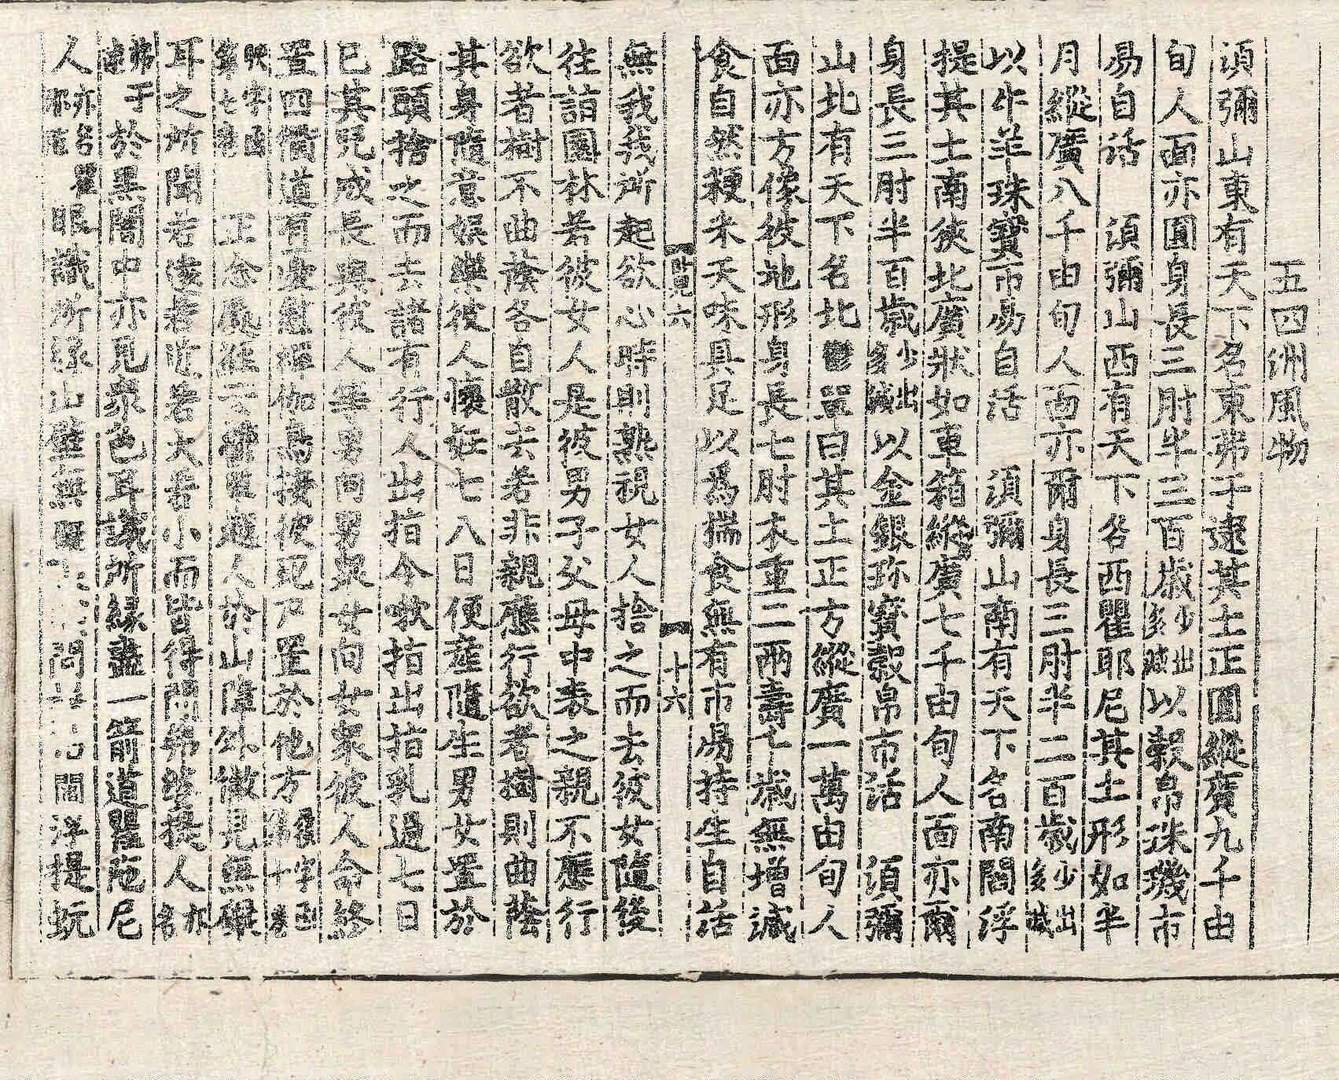 五四洲風物
須彌山東有天下名東弗于逮其土正圓縱廣九千由
旬人面亦圓身長三肘半三百歲少出多減以穀帛珠璣市
易自活　須彌山西有天下名西瞿耶尼其土形如半
月縱廣八千由旬人面亦爾身長三肘半二百歲少出多減
以牛羊珠寶市易自活　須彌山南有天下名南閻浮
提其土南狹北廣狀如車箱縱廣七千由旬人面亦爾
身長三肘半百歲少出多減以金銀珎寶穀帛市活　須彌
山北有天下名北鬱單曰其土正方縱廣一萬由旬人
面亦方像彼地形身長七肘衣重二兩壽千歲無增減
食自然粳米天味具足以為揣食無有市易持生自活
六　十六
無我我所起欲心時則熟視女人捨之而去彼女隨後
往詣園林若彼女人是彼男子父母中表之親不應行
欲者樹不曲蔭各自散去若非親應行欲者樹則曲蔭
其身隨意娛樂彼人懷妊七八日便產隨生男女置於
路頭捨之而去諸有行人出指令嗽指出指乳過七日
已其兒成長與彼人等男向男眾女向女眾彼人命終
置四衢道有憂慰禪伽鳥接彼死尸置於他方
正念處經云欝單越人於山障外徹見無礙
耳之所聞若遠若近若大若小而皆得聞弗婆提人亦名
弗于逮於黑闇中亦見眾色耳識所緣盡一箭道瞿陁尼
人亦名瞿耶尼眼識所緣山壁無礙問閻浮提